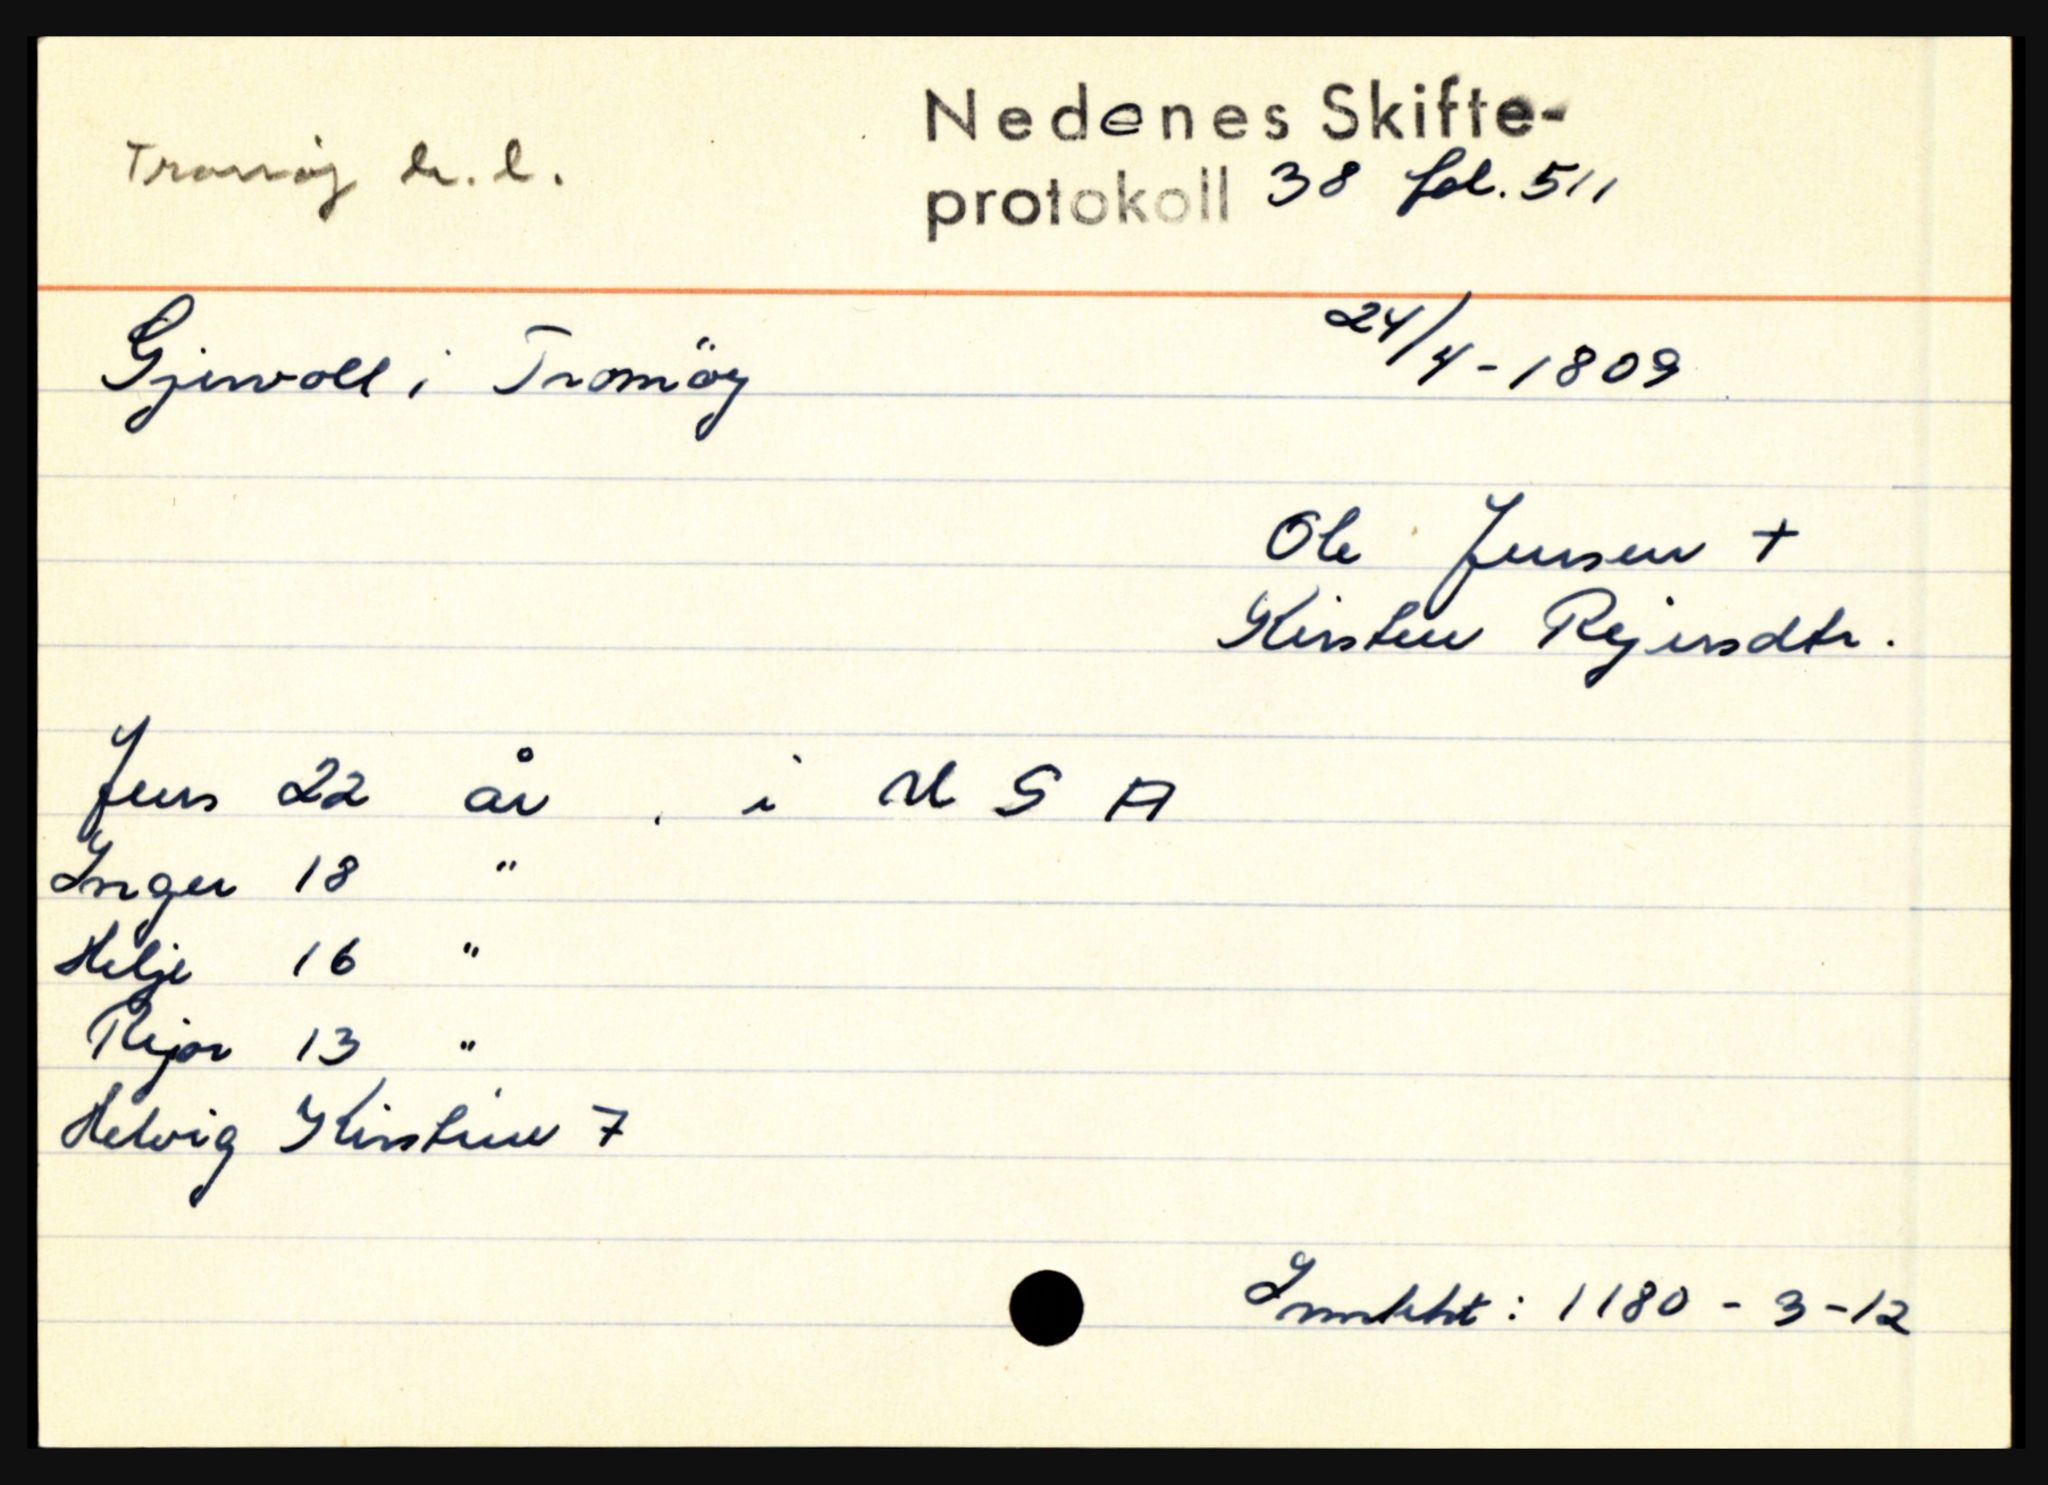 Tromöy h.l.
Nedenes Skifte-
protokoll 38 fol. 511
Gjervoll i Tromöy
24/4-1809
Ole Jensen +
Kirsten Rejersdtr.
Jens 22 år . i U S A
Inger 18 "
Helje 16 "
Rejor 13 "
Helvig Kirstine 7
: 1180 - 3 - 12